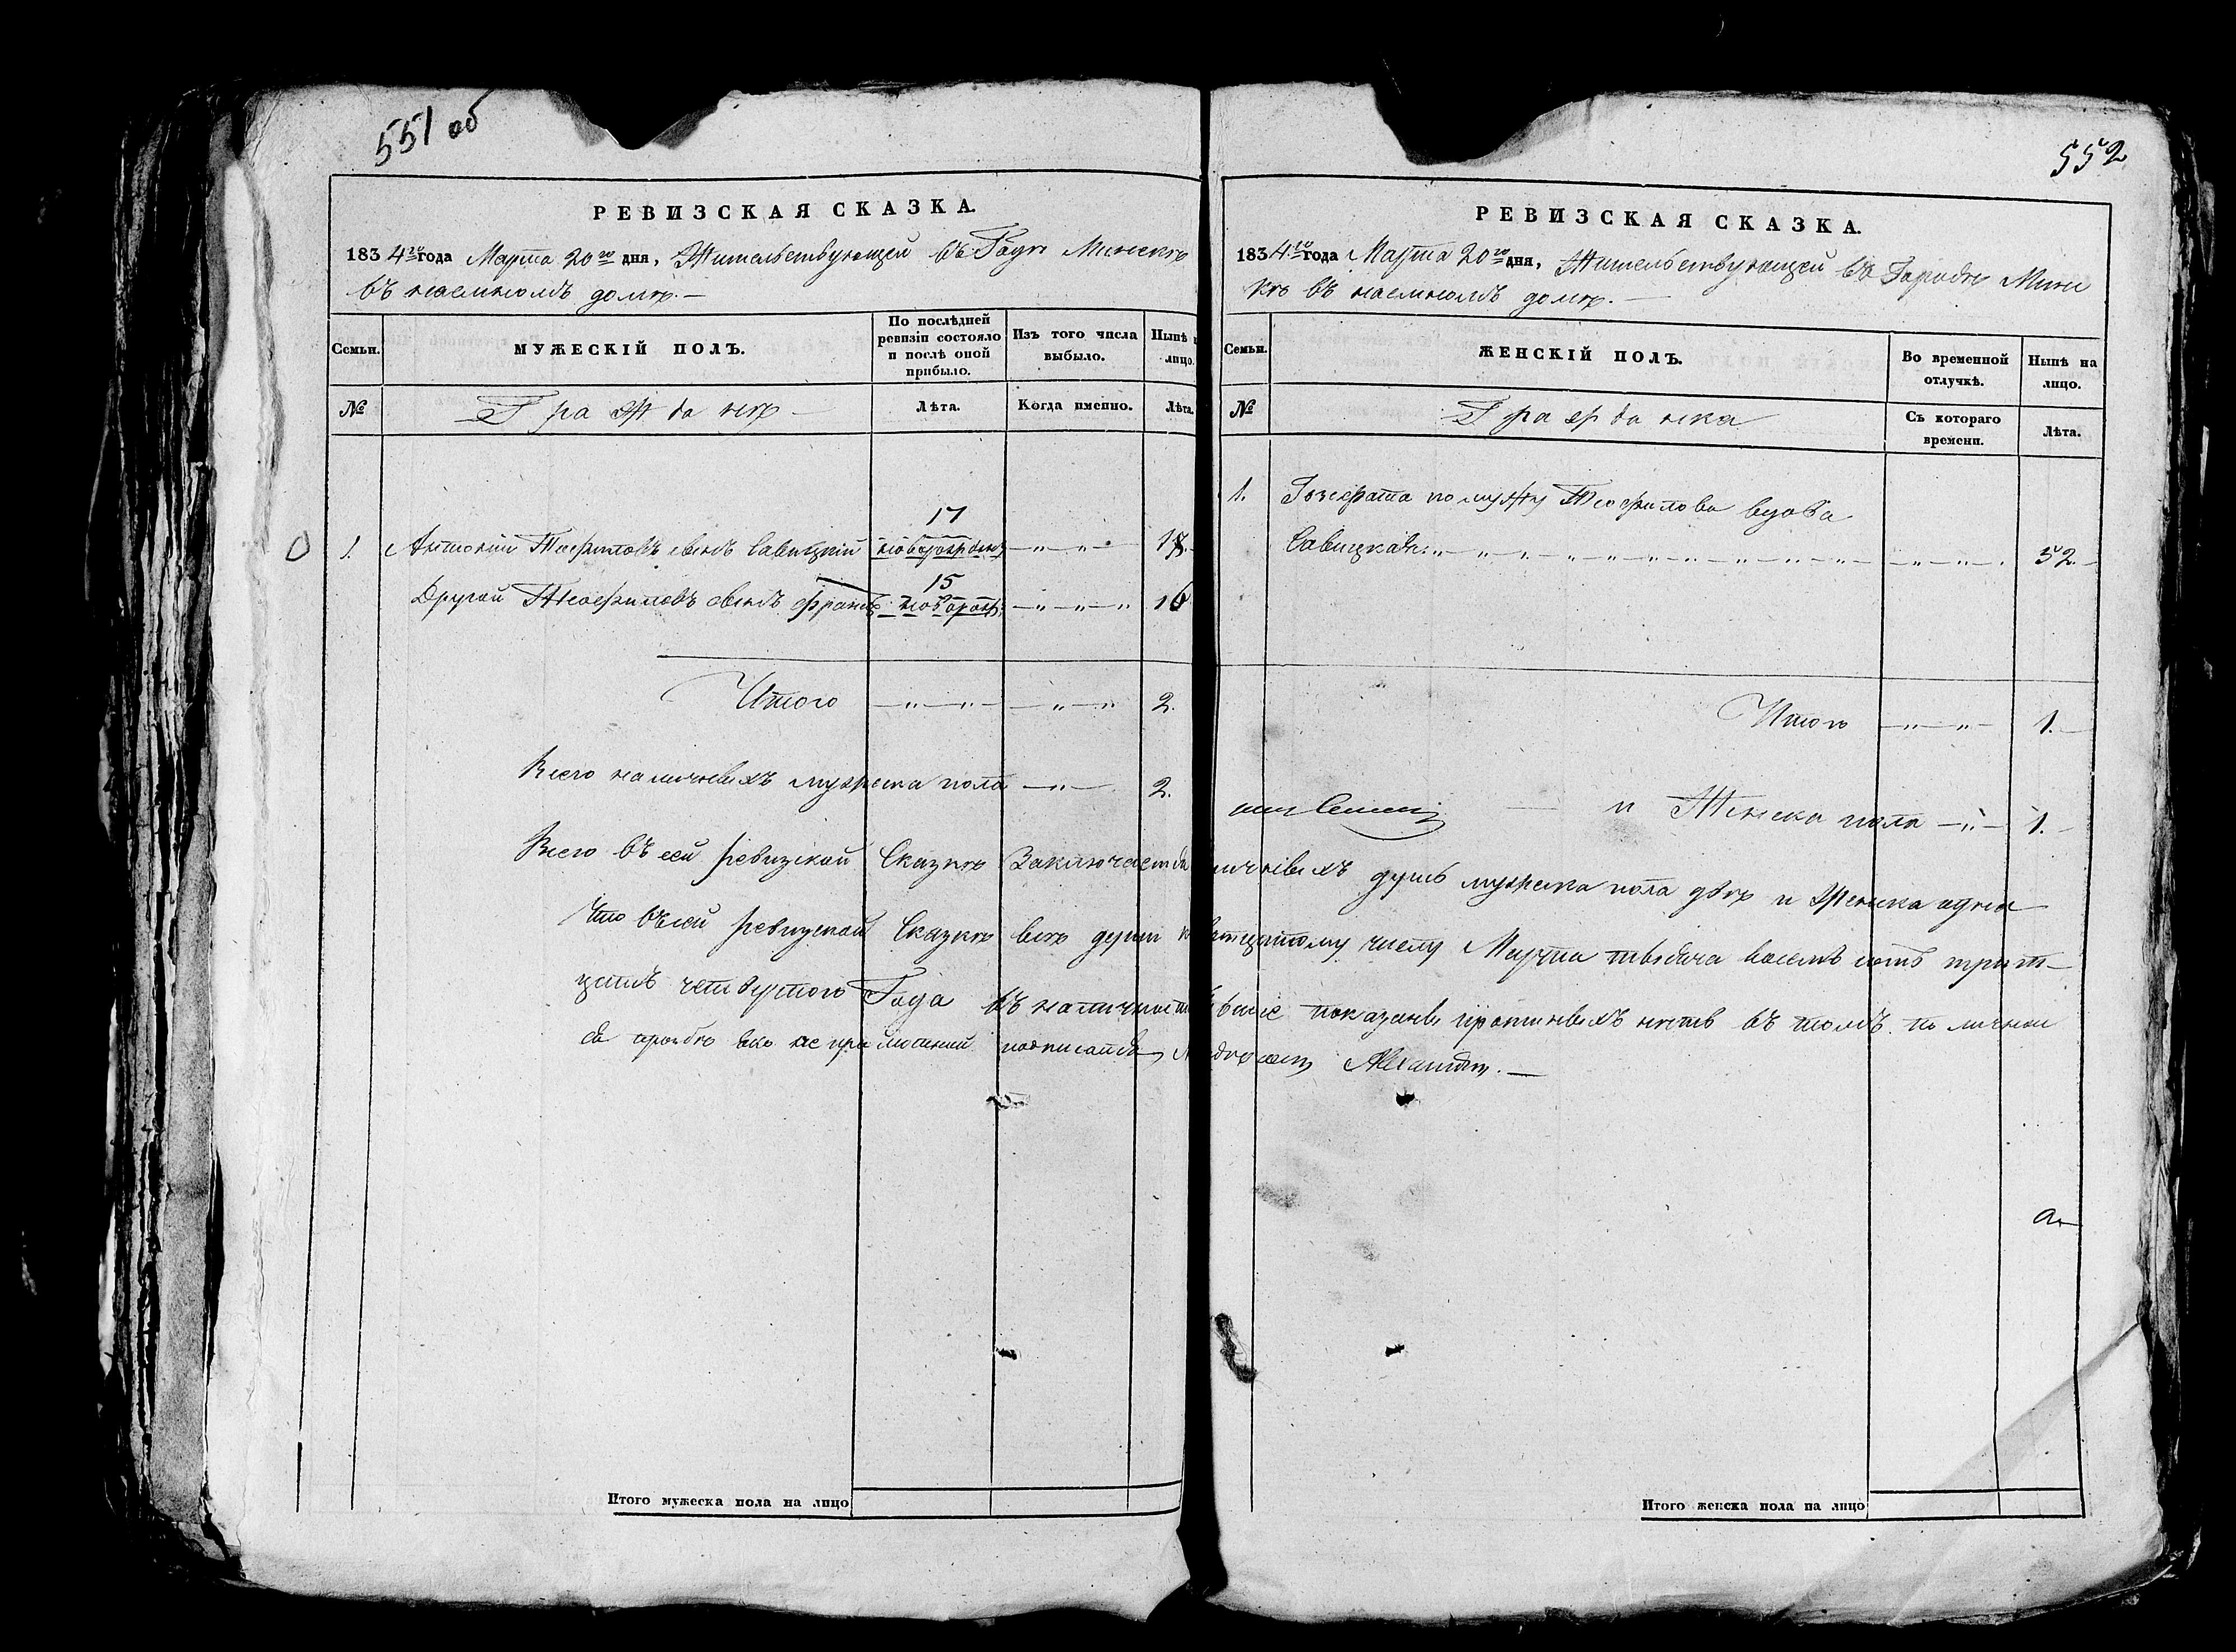 551 об
РЕВИЗСКАЯ СКАЗКА.
1834го года Марта 20го дня, Жительствующей въ Годѣ Минскѣ
въ наемномъ домѣ.—
Семьи.
МУЖЕСКІЙ ПОЛЪ.
По послѣдней ревизіи состояло и послѣ оной прибыло.
Изъ того числа выбыло.
Нынѣ н лицо.
№
Гражданѣ
Лѣта.
Когда именно.
Лѣта.
17
1. Антоній Теофиловъ сынъ Савицкій
15
Другой Теофиловъ сынъ Францъ 16
Итого 2.
Всего наличныхъ мужеска пола 2.
Всего въ сей ревизской Сказкѣ Заключается
Что въ сей ревизской Сказкѣ всѣ души
цать четвертого Года въ наличности
подписался
Итого мужеска пола на лицо
552
РЕВИЗСКАЯ СКАЗКА.
1834го года Марта 20го дня, Жительствующей въ Городѣ Минс
кѣ въ наемномъ домѣ.—
Семьи.
ЖЕНСКІЙ ПОЛЪ.
Во временной отлучкѣ.
Нынѣ на лицо.
№
Гражданка
Съ котораго времени.
Лѣта.
1. Іозефата по мужу Теофилова вдова
Савицкая 52.
Итого 1.
и Женска пола 1.
личныхъ душъ мужеска пола двѣ и Женска одна
числу Марта тысяча восемъ сотъ трит-
показаны нѣтъ въ томъ по личной
Итого женска пола на лицо